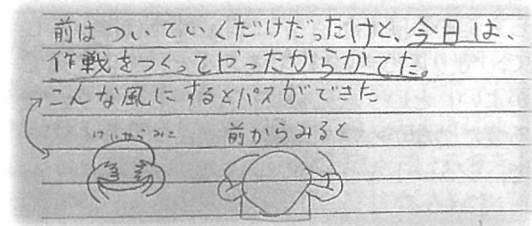 前はついていくだけだったけど、今日は、
作戦をつくってやったからかてた。
こんな風にするとパスができた
前からみると